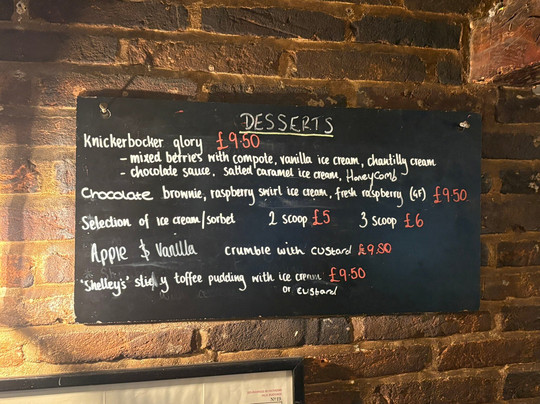 DESSERTS
Knickerbocker glory £9.50
- mixed berries with compote, vanilla ice cream, chantilly cream
- chocolate sauce, salted caramel ice cream, Honeycomb
Chocolate brownie, raspberry swirl ice cream, fresh raspberry (GF) £9.50
Selection of ice cream/sorbet 2 scoop £5 3 scoop £6
Apple & Vanilla crumble with custard
'Shelley's' toffee pudding with ice cream £9.50
or custard